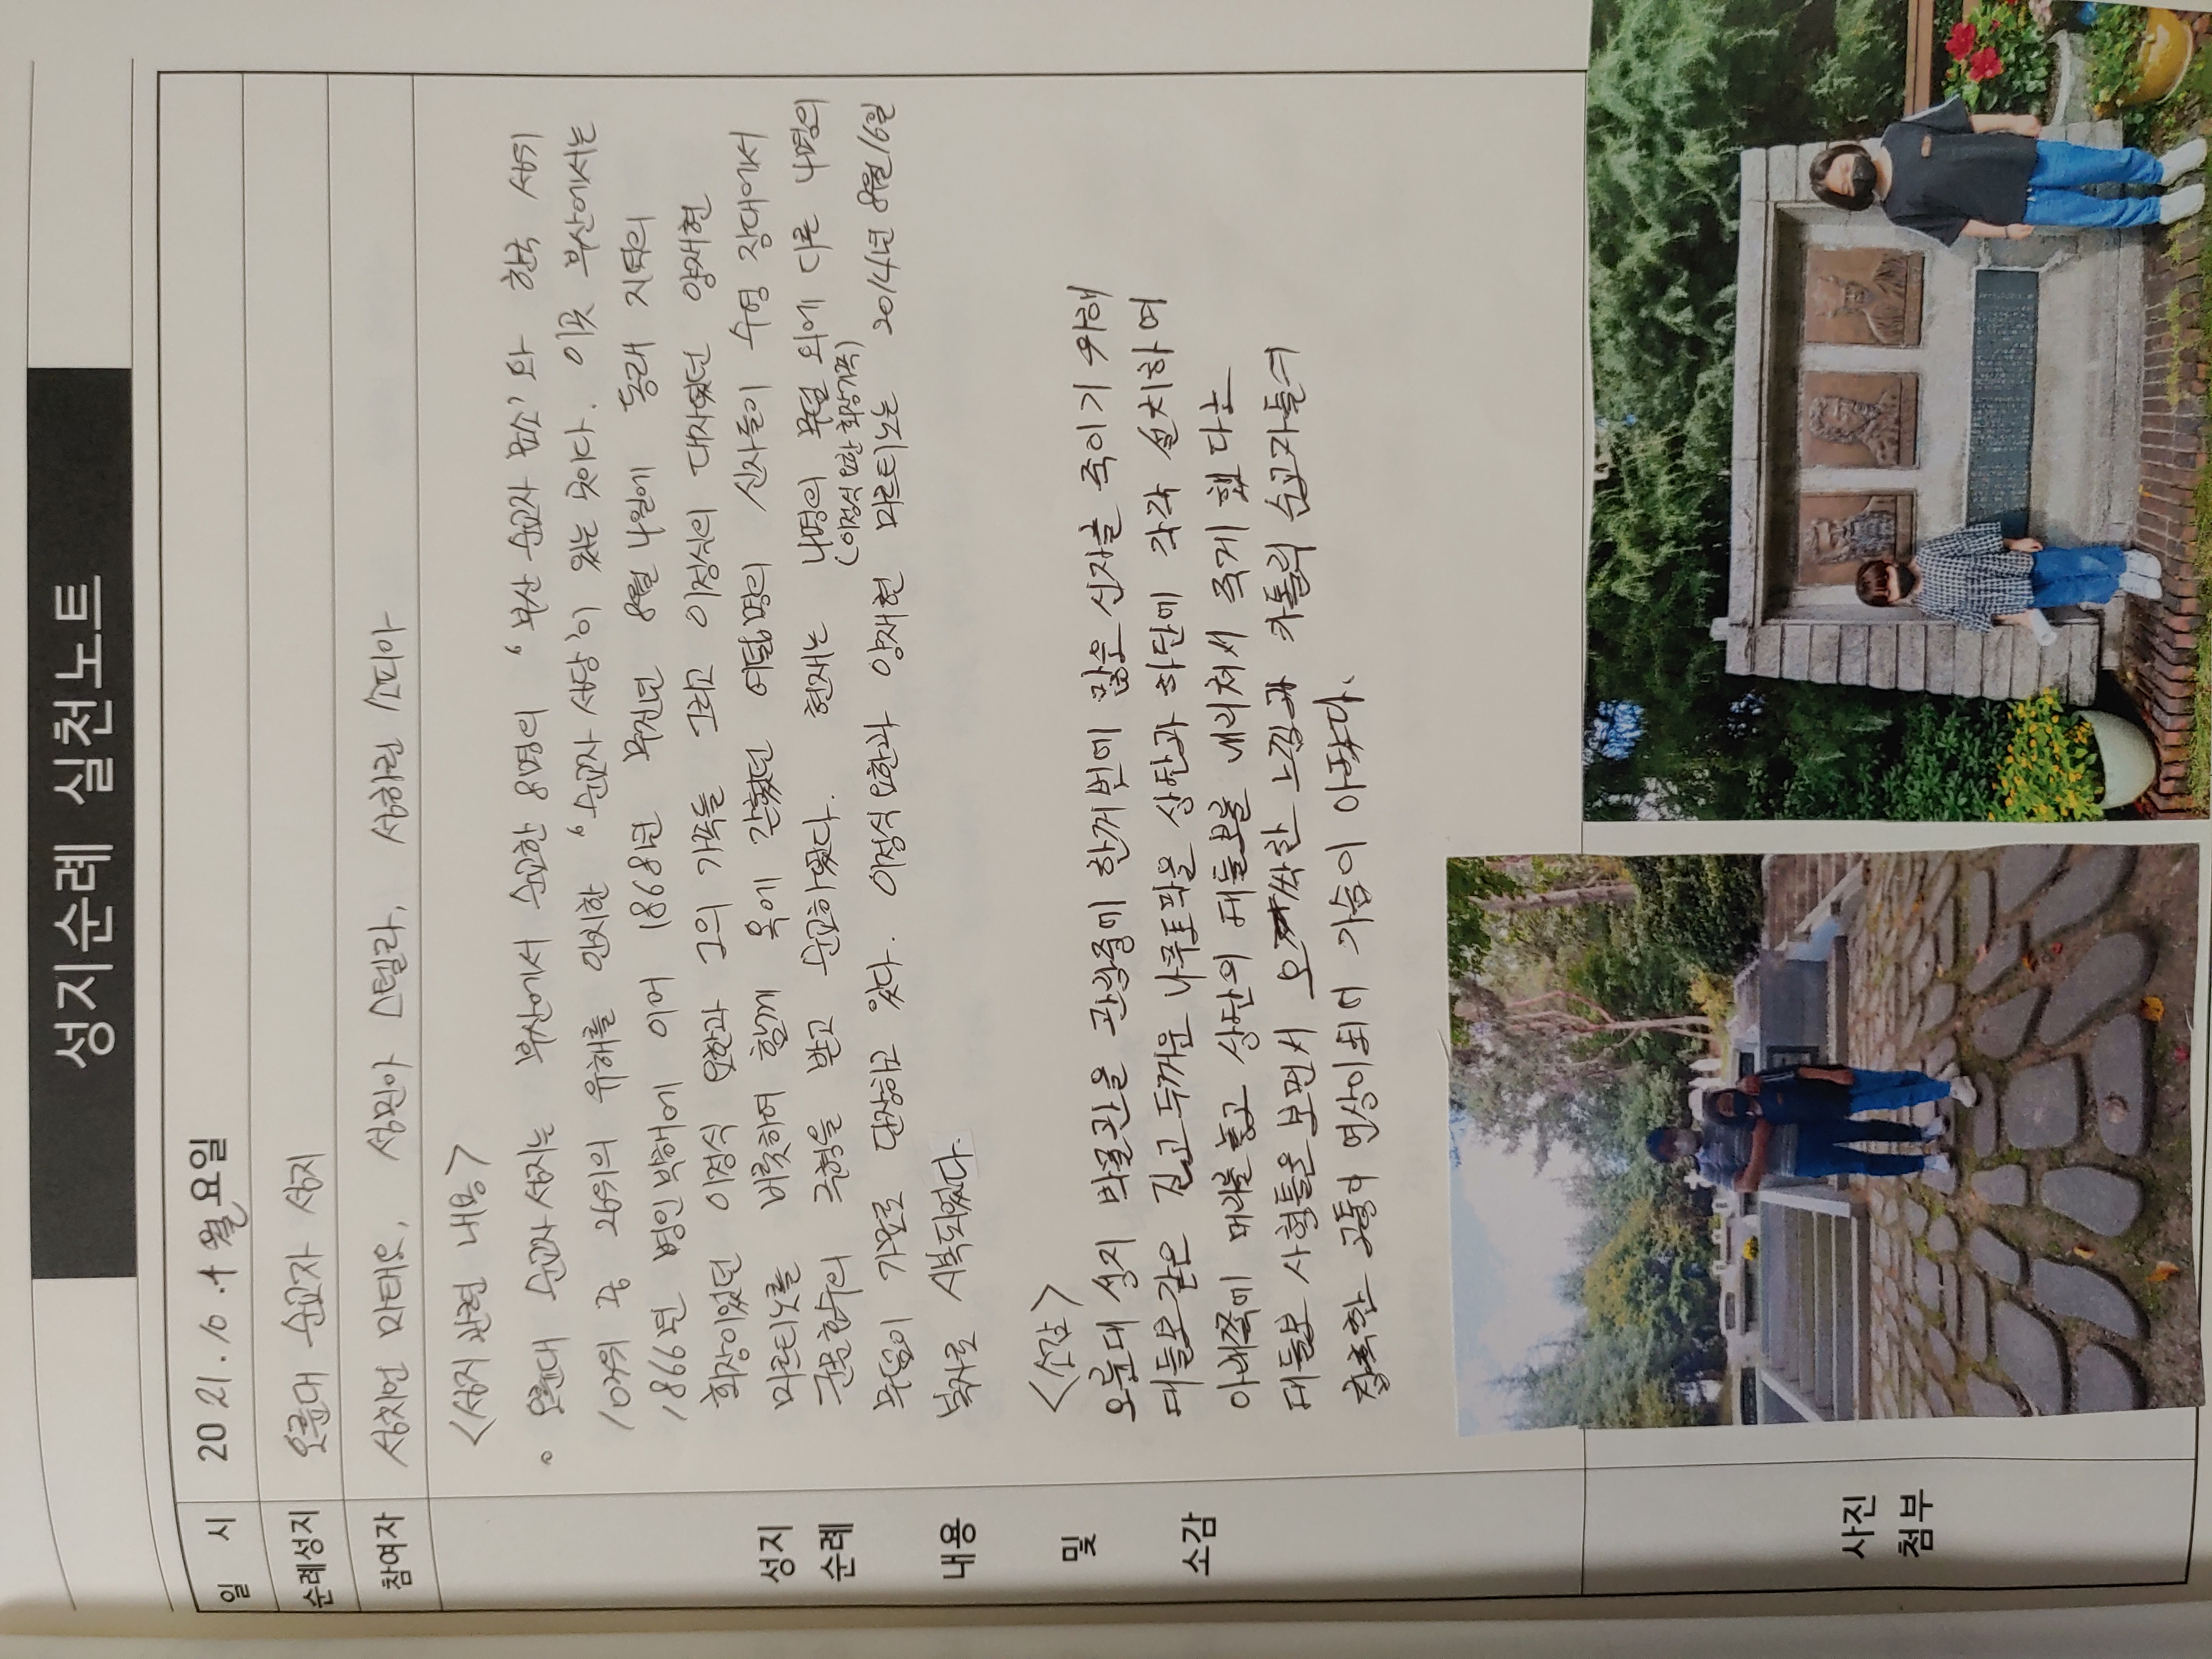 성지순례 실천노트
일 시 2021. 10. 4 월요일
순례성지 오륜대 순교자 성지
참여자 성치언 마태오, 성민아 스텔라, 성하린 소피아
성지 순례 내용 및 소감
<성지 관련 내용>
◦ 오륜대 순교자 성지는 부산에서 순교한 8명의 '부산 순교자 묘소'와 한국 성위
103위 중 26위의 유해를 안치한 '순교자 성당'이 있는 곳이다. 이곳 부산에서는
1866년 병인박해에 이어 1868년 무진년 8월 4일에 동래 지역의
회장이었던 이정식 요한과 그의 가족들 그리고 이정식의 대자였던 양재현
마르티노를 비롯하여 함께 옥에 갇혔던 여덟명의 신자들이 수영 장대에서
군문효수의 극형을 받고 순교하였다. 현재는 4명의 무덤 외에 다른 4명의
(이정식 요한 회장가족)
무덤이 가묘로 단장하고 있다. 이정식 요한과 양재현 마르티노는 2014년 8월 16일
복자로 시복되었다.
<소감>
오륜대 성지 박물관을 관람중에 한꺼번에 많은 신자를 죽이기 위해
대들보같은 길고 두꺼운 나무토막을 상단과 하단에 각각 설치하여
아래쪽에 머리를 놓고 상단의 대들보를 내리쳐서 죽게 했다는
대들보 사형틀을 보면서 오싹한 느낌과 카톨릭 순교자들의
참혹한 고통이 연상이되어 가슴이 아팠다.
사진
첨부